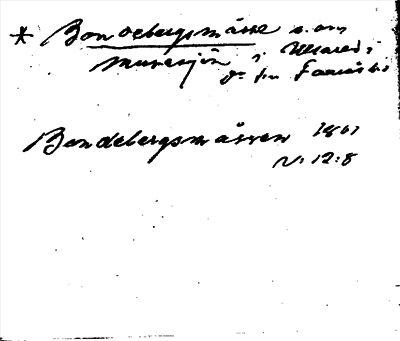 * Bondebergsmåsse s. om
Munesjön i Ulared i
Bondebergsmåssen 1801
N: 12:8